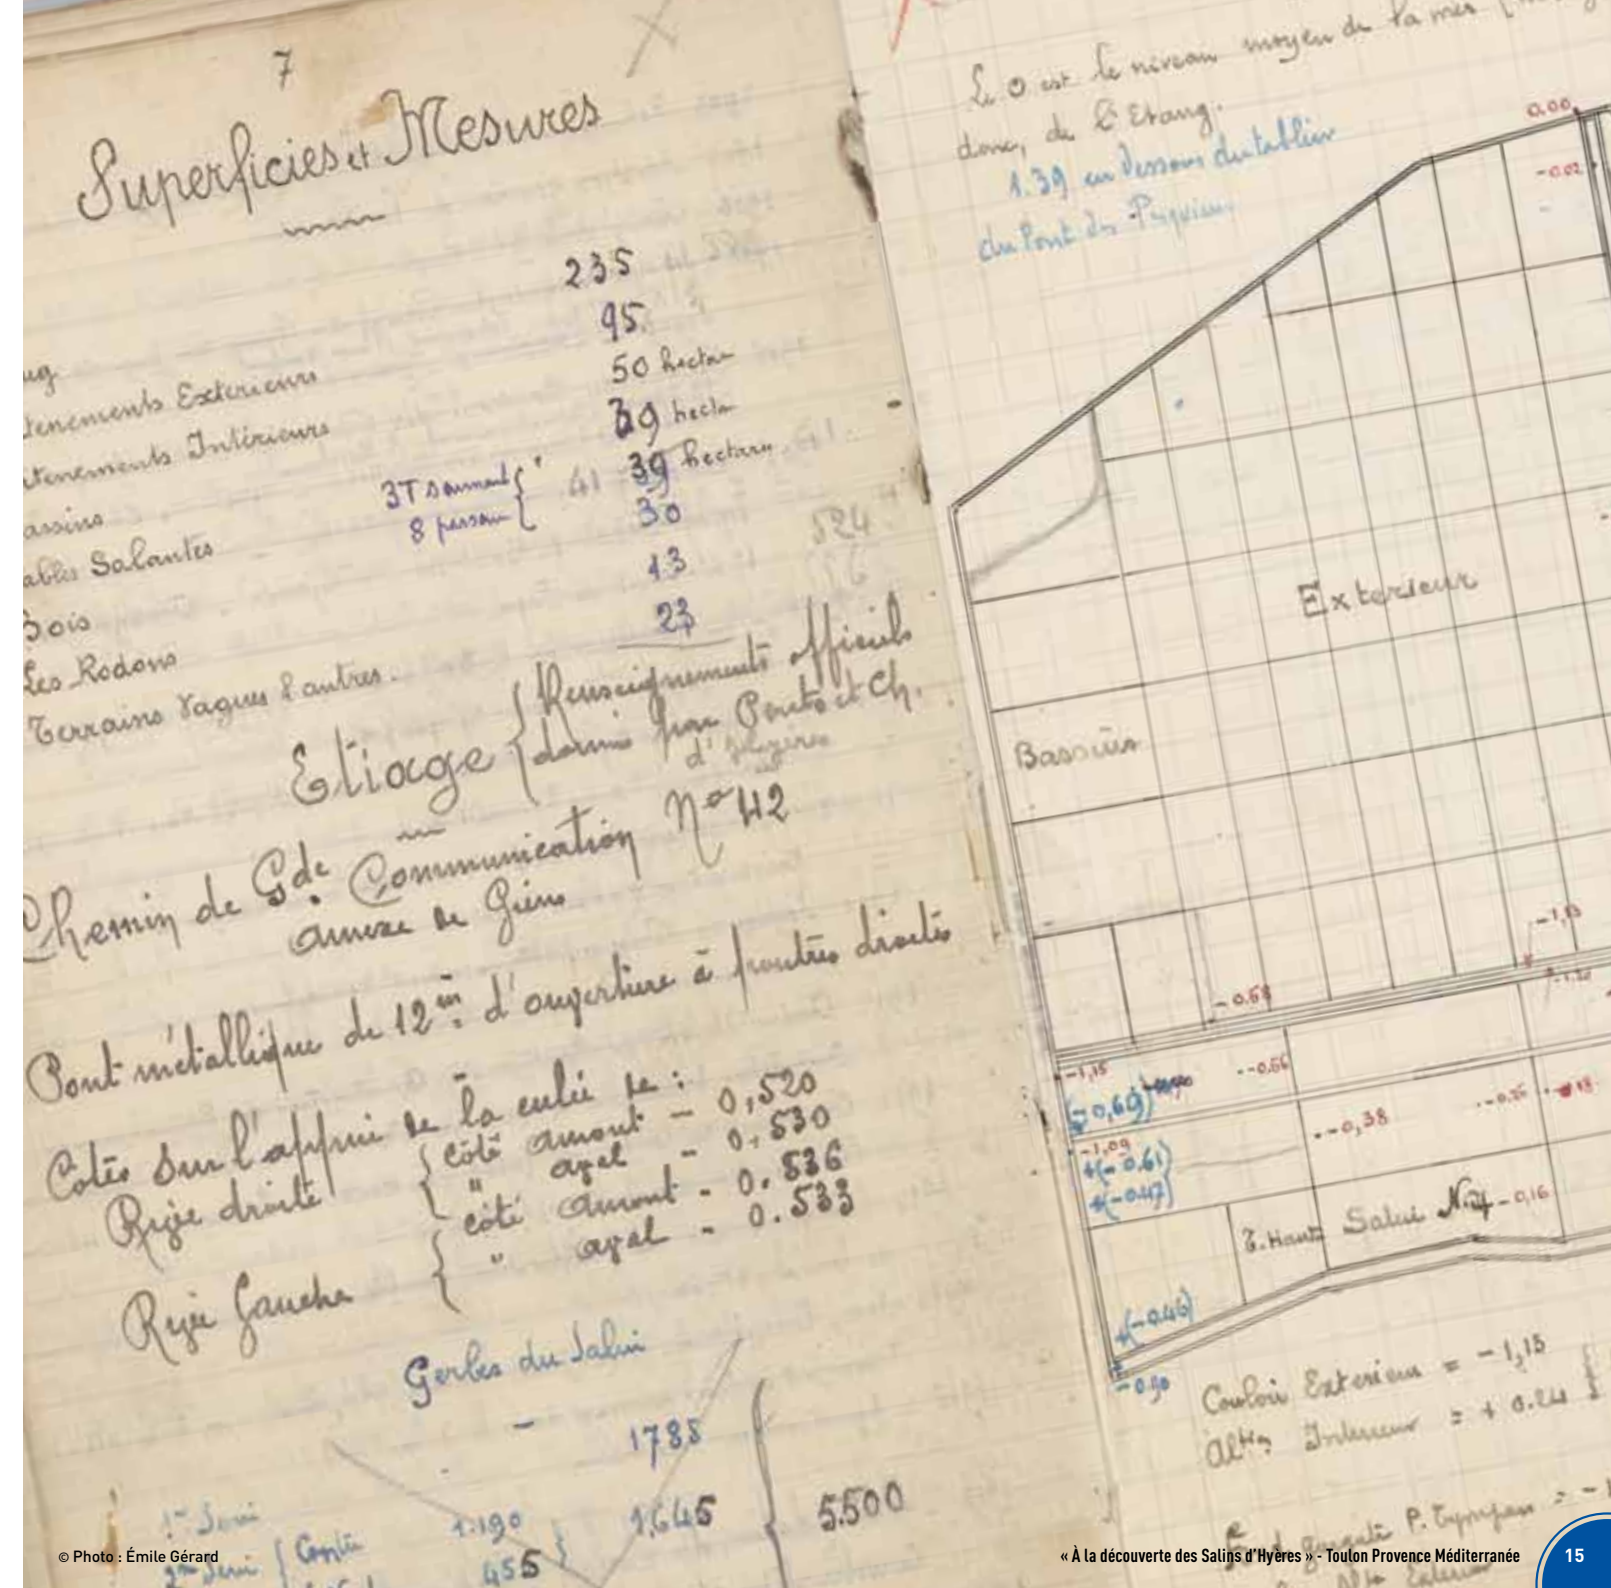 7
Superficies et Mesures
235
95
50 hectar
hectar
39 hectares
30
13
23
ug
tenements Exterieurs
tenements Intérieurs
assins
ables Salantes
3T saunant
8 
41
524
Bois
Les Rodons
Terrains Vagues & autres.
Etiage
Renseignements officiels
donnés par Ponts et Ch.
d'Hyeres
Chemin de Gde Communication No 42
annexe de Giens
Pont métallique de 12m d'ouverture à poutres droites
Cotes sur l'appui de la culée de :
Rive droite
côté amont - 0,520
" aval - 0.530
Rive Gauche
côté amont - 0.536
" aval - 0.533
Gerbes du Salin
- 1785
1.190
1,645
455
5.500
Le 0 est le niveau moyen de la mer
donc, de l'Etang.
1.39 en dessous du tablier
du Pont des Pesquiers
0.00
-0.02
Exterieur
Bassins
-1,15
-0.68
-1,15
--0.66
(-0,60)
-1,09
+(-0.61)
+(-0.47)
--0,38
T. Haute Salin No 4 -0,16
+(-0.46)
-0.90
Couloir Exterieur = -1,15
Interieur = + 0.24
© Photo : Émile Gérard
« À la découverte des Salins d'Hyères » - Toulon Provence Méditerranée
15